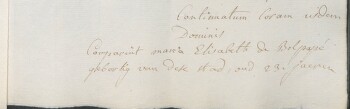 Continuatum Coram iisdem
Dominis
Compareert maria Elisabeth de
geboortig van dese stad, oud 23. Jaeren